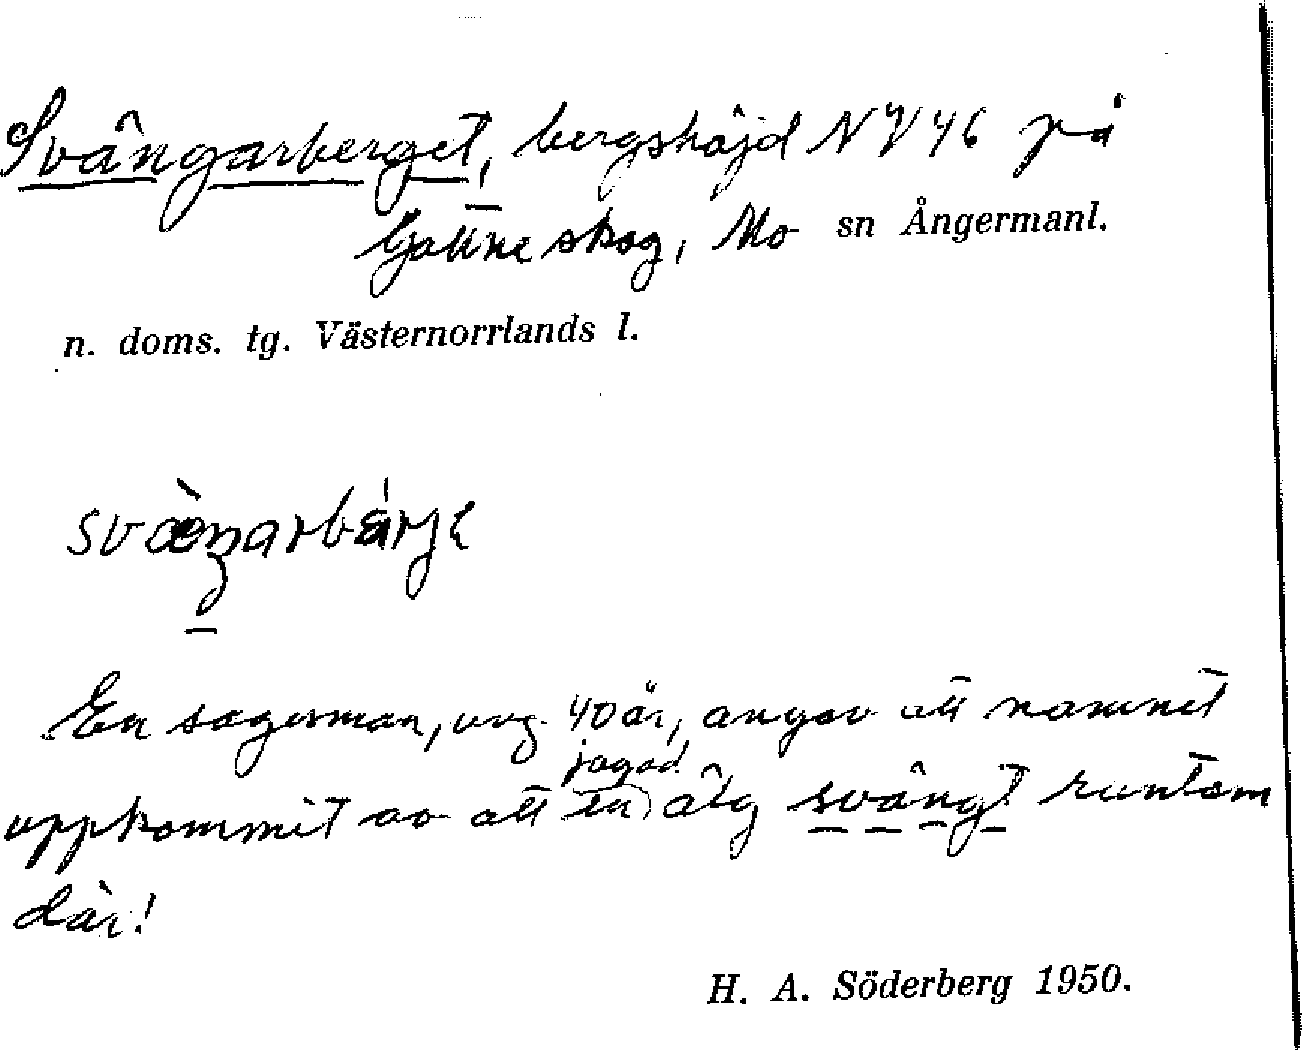 Svängarberget, bergshöjd NV 46 på
Gottne skog, Mo sn Ångermanl.
n. doms. tg. Västernorrlands l.
svæ̀ŋarbárje
En sagesman, ung. 40 år, angav att namnet
jagad
uppkommit av att en älg svängt runtom
där!
H. A. Söderberg 1950.